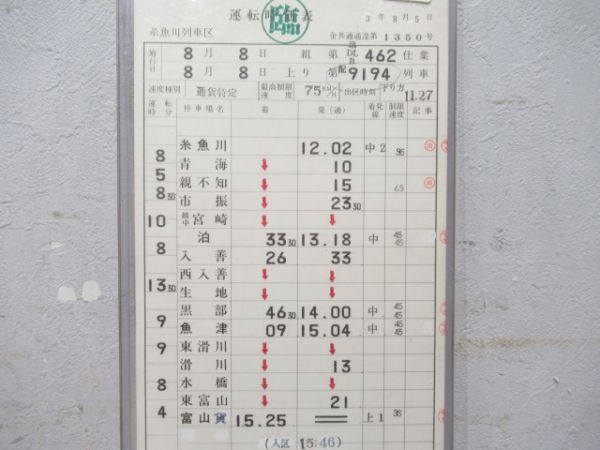 運転時刻表
臨
3年8月5日
糸魚川列車区 金共通達第1350号
施行日 8月8日 組 第 DL B 462 仕業
8月8日 上り 第 配 9194 列車
速度種別 通貨特定 最高制限速度 75 KM/H 出区時刻 下り方 11.27
運転時分 停車場名 着 発(通) 着発線 制限速度 記事
糸魚川 12.02 中2
8
青海 ↓ 10
5
親不知 ↓ 15 65
8 30
市振 ↓ 23 30
10 越中宮崎 ↓ ↓
泊 33 30 13.18 中 45 45
8
入善 26 33
西入善 ↓ ↓
13 30
生地 ↓ ↓
黒部 46 30 14.00 中 45 45
9
魚津 09 15.04 中 45 45
9 東滑川 ↓ ↓
滑川 ↓ 13
8 水橋 ↓ ↓
東富山 ↓ 21
4
富山貨 15.25 上1 35
(入区 15:46)